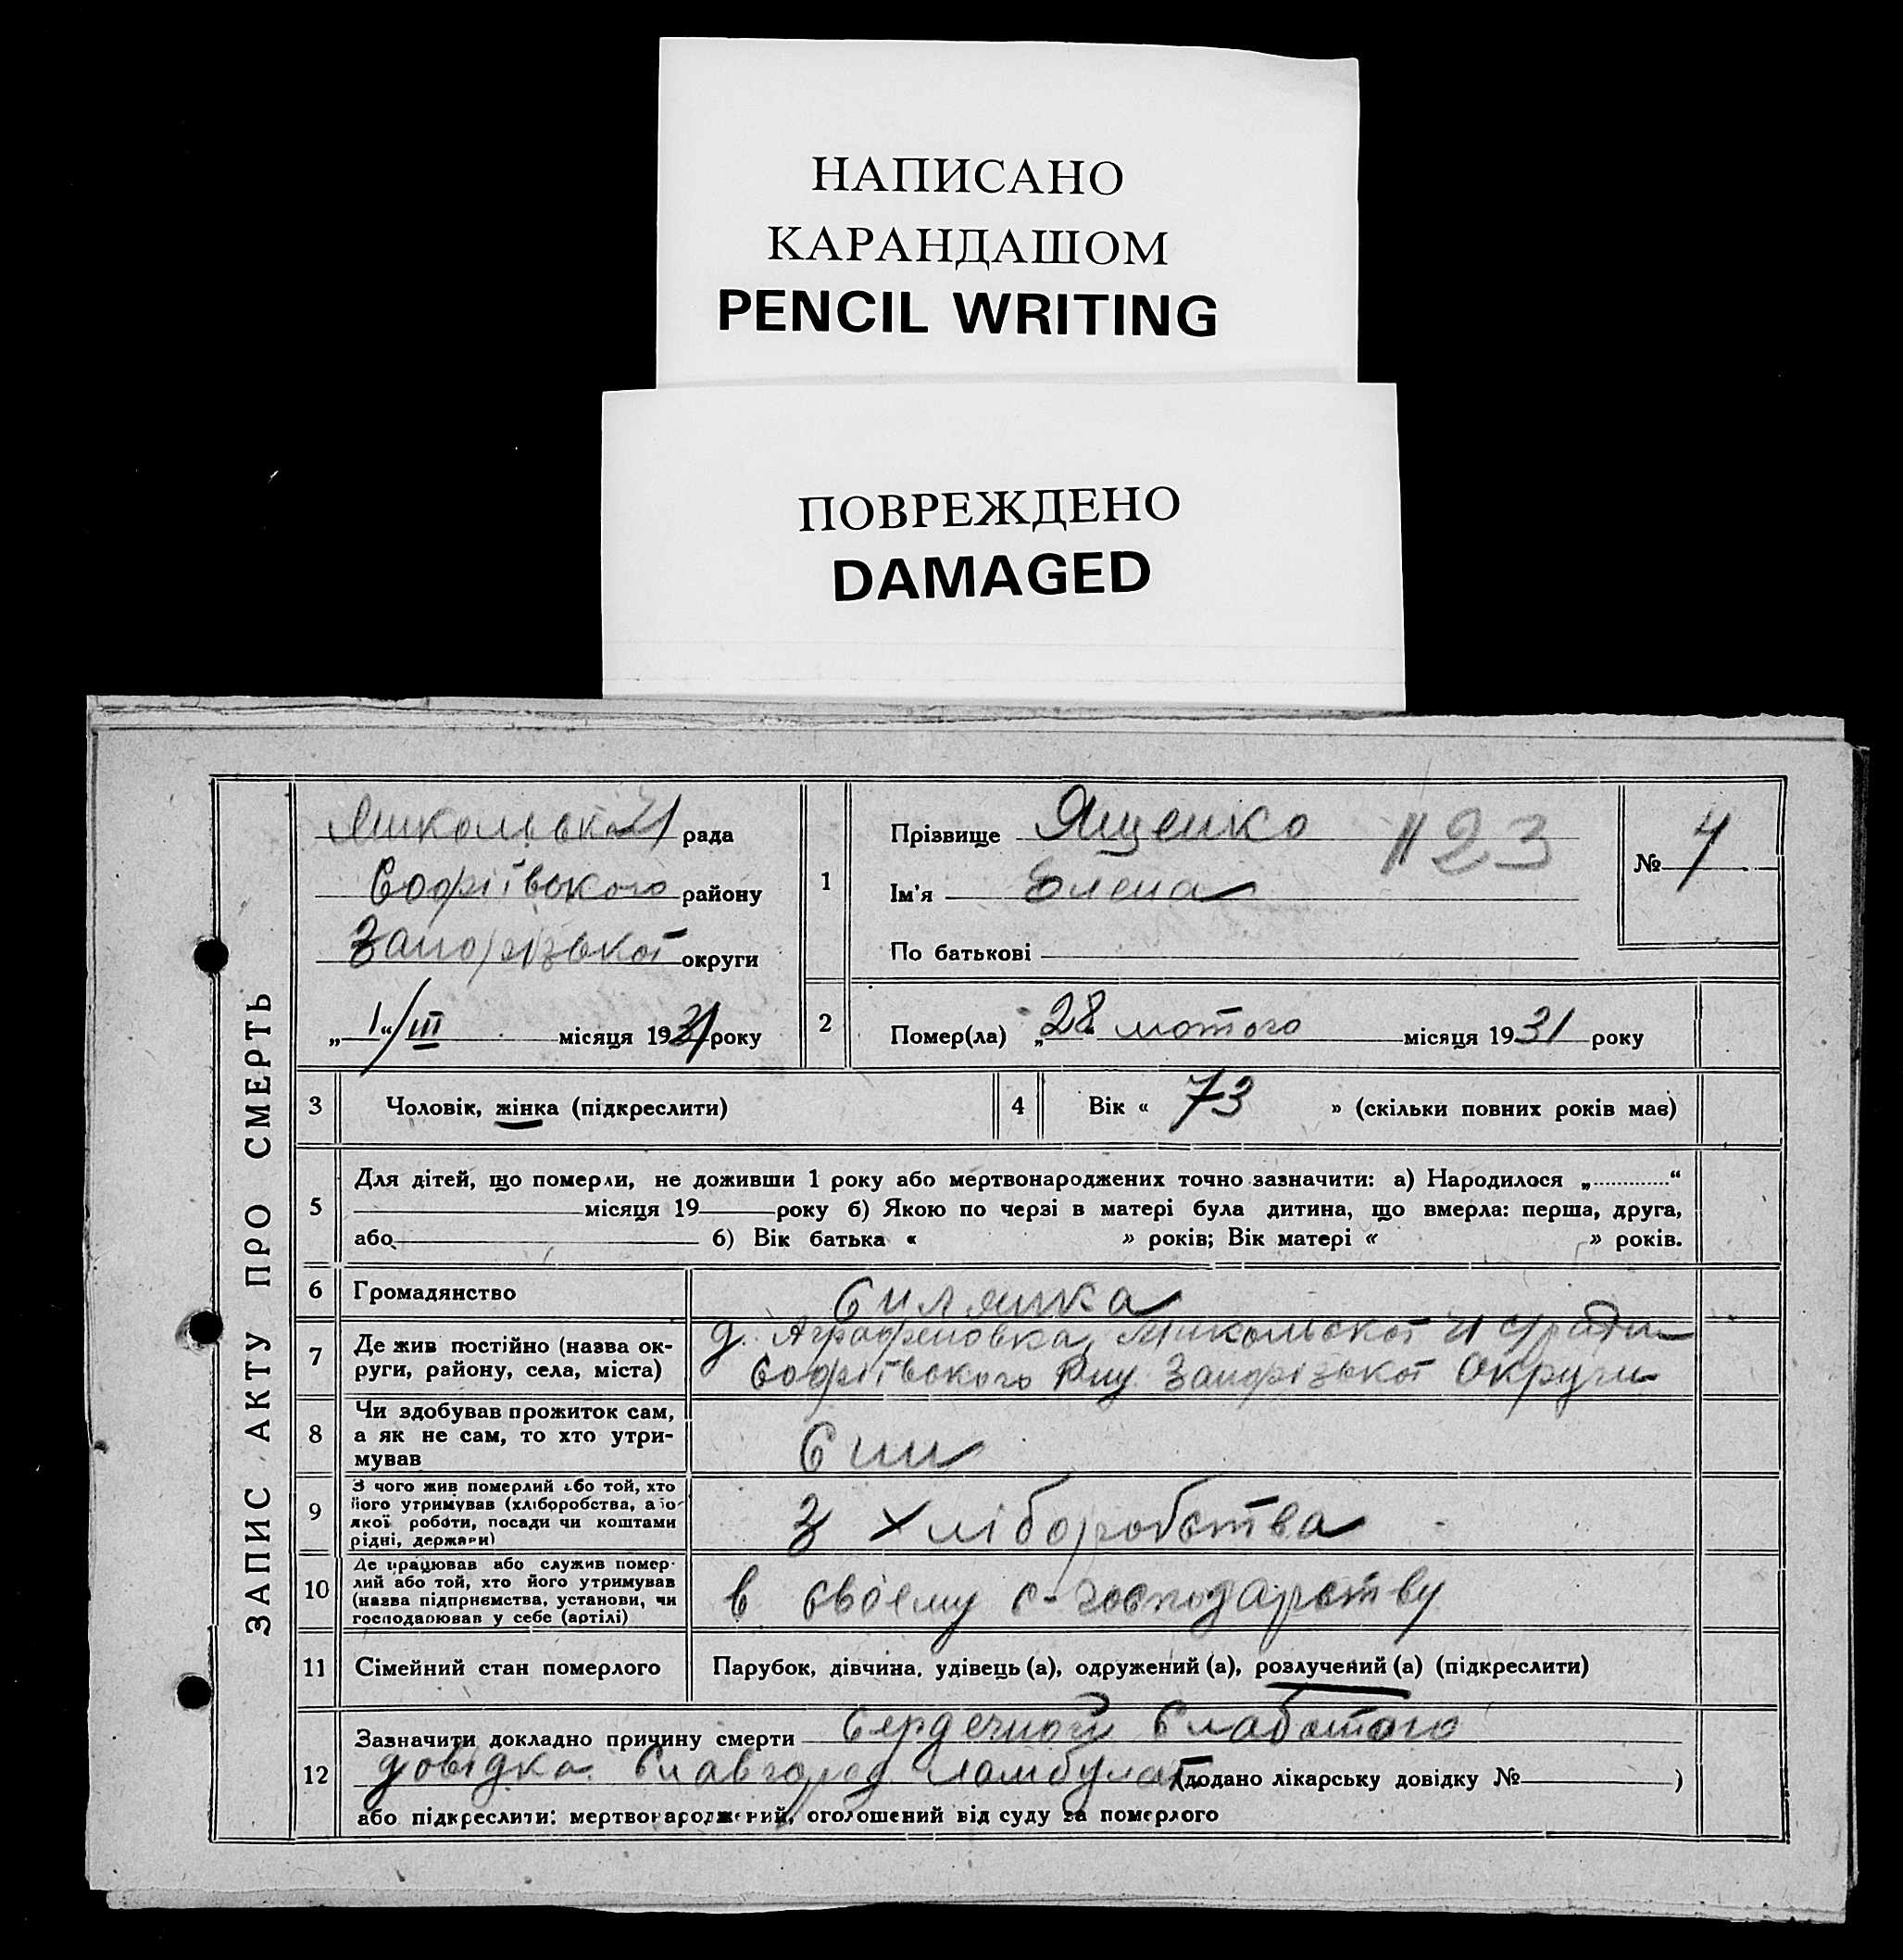 НАПИСАНО
КАРАНДАШОМ
PENCIL WRITING
ПОВРЕЖДЕНО
DAMAGED
ЗАПИС АКТУ ПРО СМЕРТЬ
рада
Софіївского району
Запорізької округи
„1“/III місяця 1931 року
1
Прізвище Ященко
Ім'я Елена
По батькові
23
№ 4
2
Помер(ла) „28 лютого місяця 1931 року
3 Чоловік, жінка (підкреслити)
4 Вік « 73 » (скільки повних років має)
5 Для дітей, що померли, не доживши 1 року або мертвонароджених точно зазначити: а) Народилося „............“
місяця 19 року б) Якою по черзі в матері була дитина, що вмерла: перша, друга,
або б) Вік батька « » років; Вік матері « » років.
6 Громадянство Силянка
7 Де жив постійно (назва ок-
руги, району, села, міста)
д. Аграфеновка, Микольскої
Софіївского Р-ну Запорізької Округи
8 Чи здобував прожиток сам,
а як не сам, то хто утри-
мував
Син
9 З чого жив померлий або той, хто
його утримував (хліборобства, або
якої роботи, посади чи коштами
рідні, держави)
З хліборобства
10 Де працював або служив помер-
лий або той, хто його утримував
(назва підприємства, установи, чи
господарював у себе (артілі)
в своему с-господарству
11 Сімейний стан померлого Парубок, дівчина, удівець (а), одружений (а), розлучений (а) (підкреслити)
12 Зазначити докладно причину смерти Сердечной Слабостого
довідка Славгород (додано лікарську довідку № )
або підкреслити: мертвонароджений, оголошений від суду за померлого